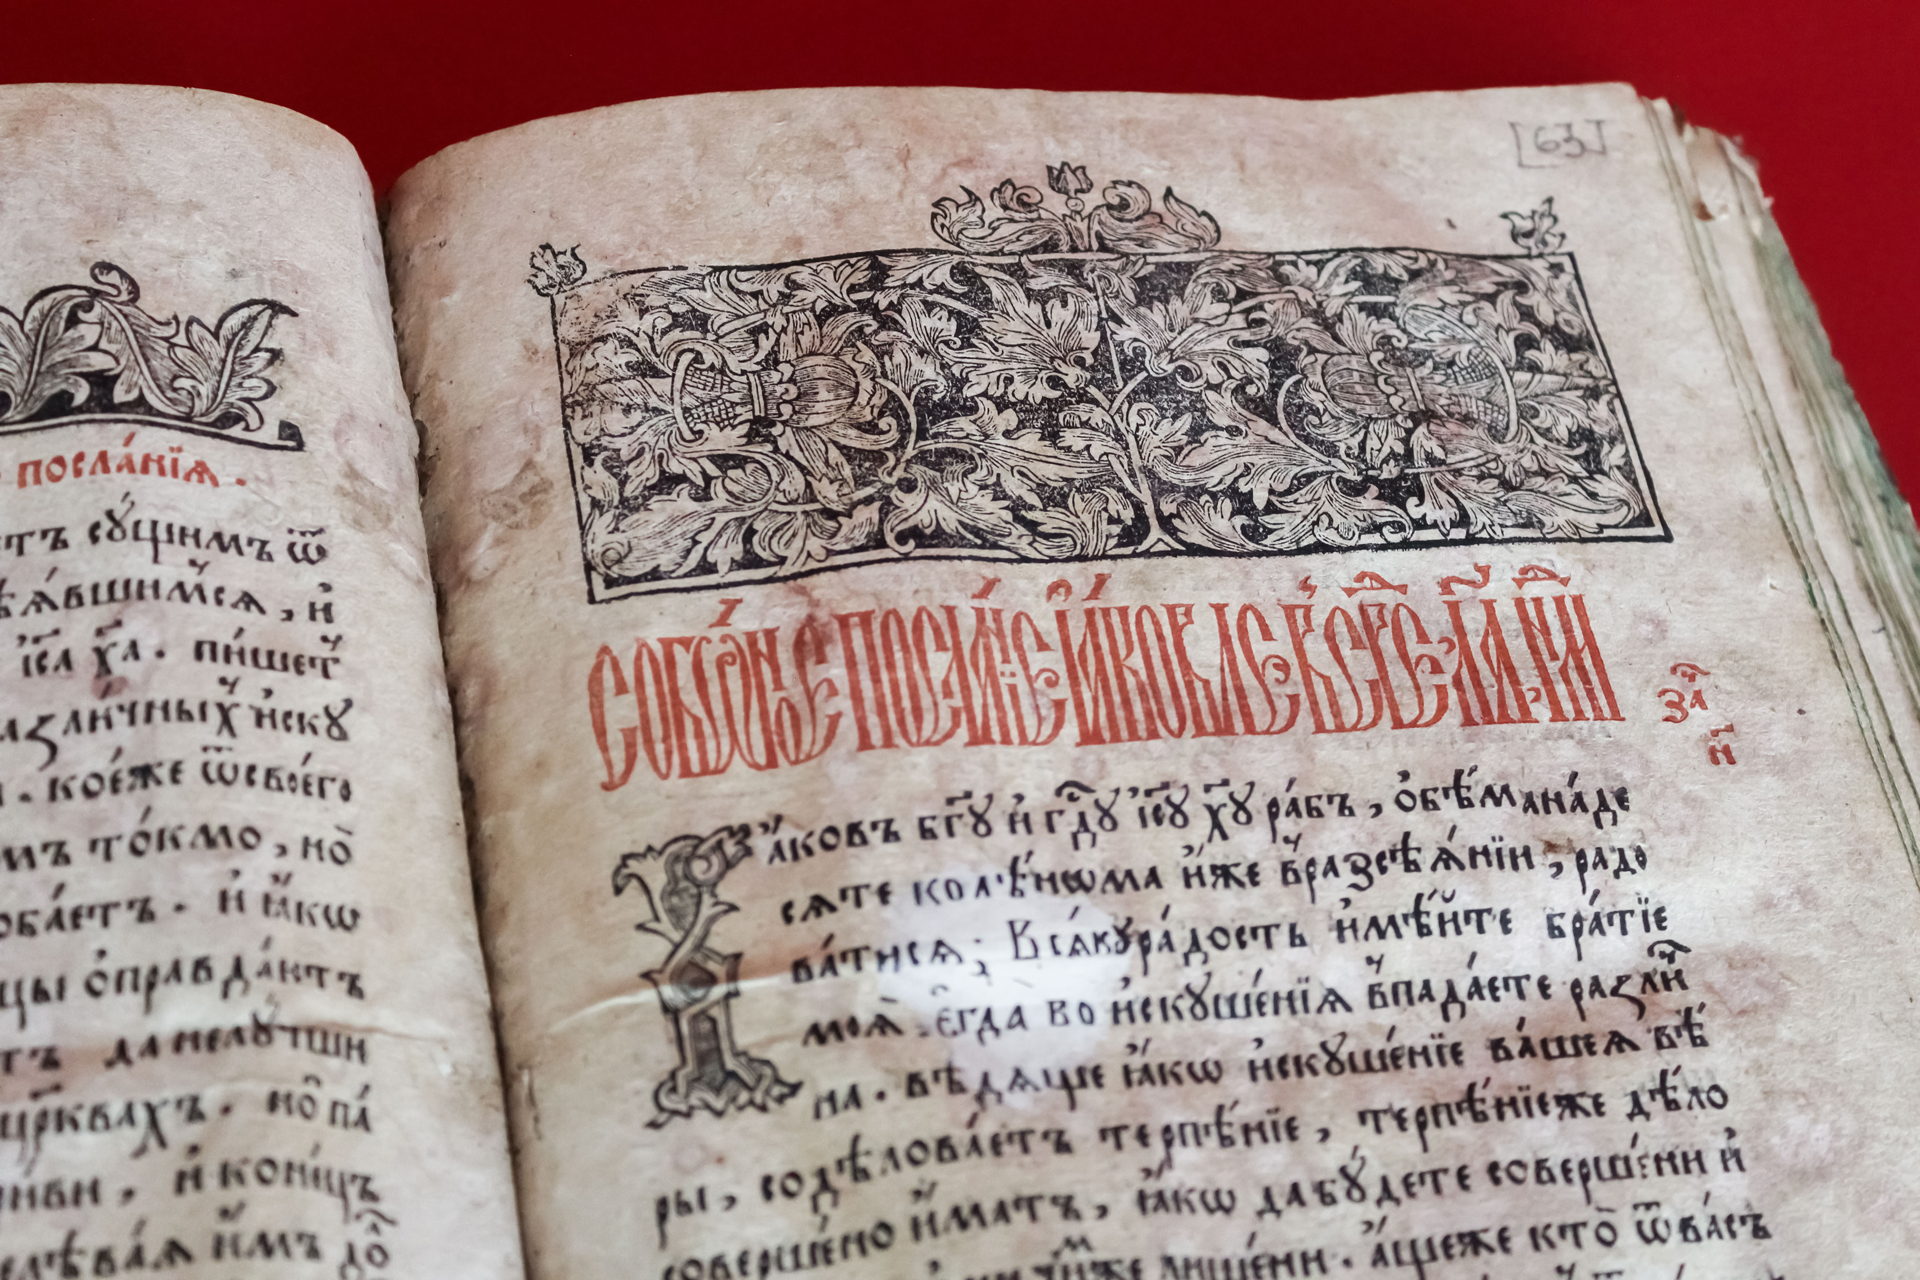 посла́нїѧ .
тъ сꙋ́щимъ ѿ
ѣѧ́вшимсѧ , и҆
і҆с҃а х҃а . пи́шет
азли́чныхъ и҆скꙋ
. кое́же ѿсвоегѡ̀
мъ то́кмо , но̀
оба́етъ . и҆ ꙗ҆́кѡ
цы ѡ҆правда́ютъ
тъ данелꙋ́тши
црквахъ . но̀ па́
ивн , и҆ коне́цъ
елѣва́ѧ и҆̀мъ до̀
[63]
СОБО́РНОЕ ПОСЛА́НЇЕ І҆А́КОВЛЕ
за́ч
н҃
І҆а́ковъ бг҃ꙋ и҆ гдⷭ҇ꙋ і҆с҃ꙋ х҃ꙋ ра́бъ , ѻ҆бѣ́манаде
сѧте колѣ́нома и҆̀же вразсѣѧ́нїи , радо
ватисѧ ; Всѧ́кꙋра́дость и҆мѣ́йте бра́тїе
моѧ̀ . е҆гда̀ во и҆скꙋше́нїѧ впа́даете разли́ч
на . вѣ́дѧще ꙗ҆́кѡ и҆скꙋше́нїе ва́шеѧ вѣ́
ры , содѣловаетъ терпѣ́нїе , терпѣ́нїеже дѣ́ло
соверше́но и҆́мать , ꙗ҆́кѡ дабꙋ́дете соверше́ни и҆
лише́ни . а҆́щеже кто̀ ѿва́съ